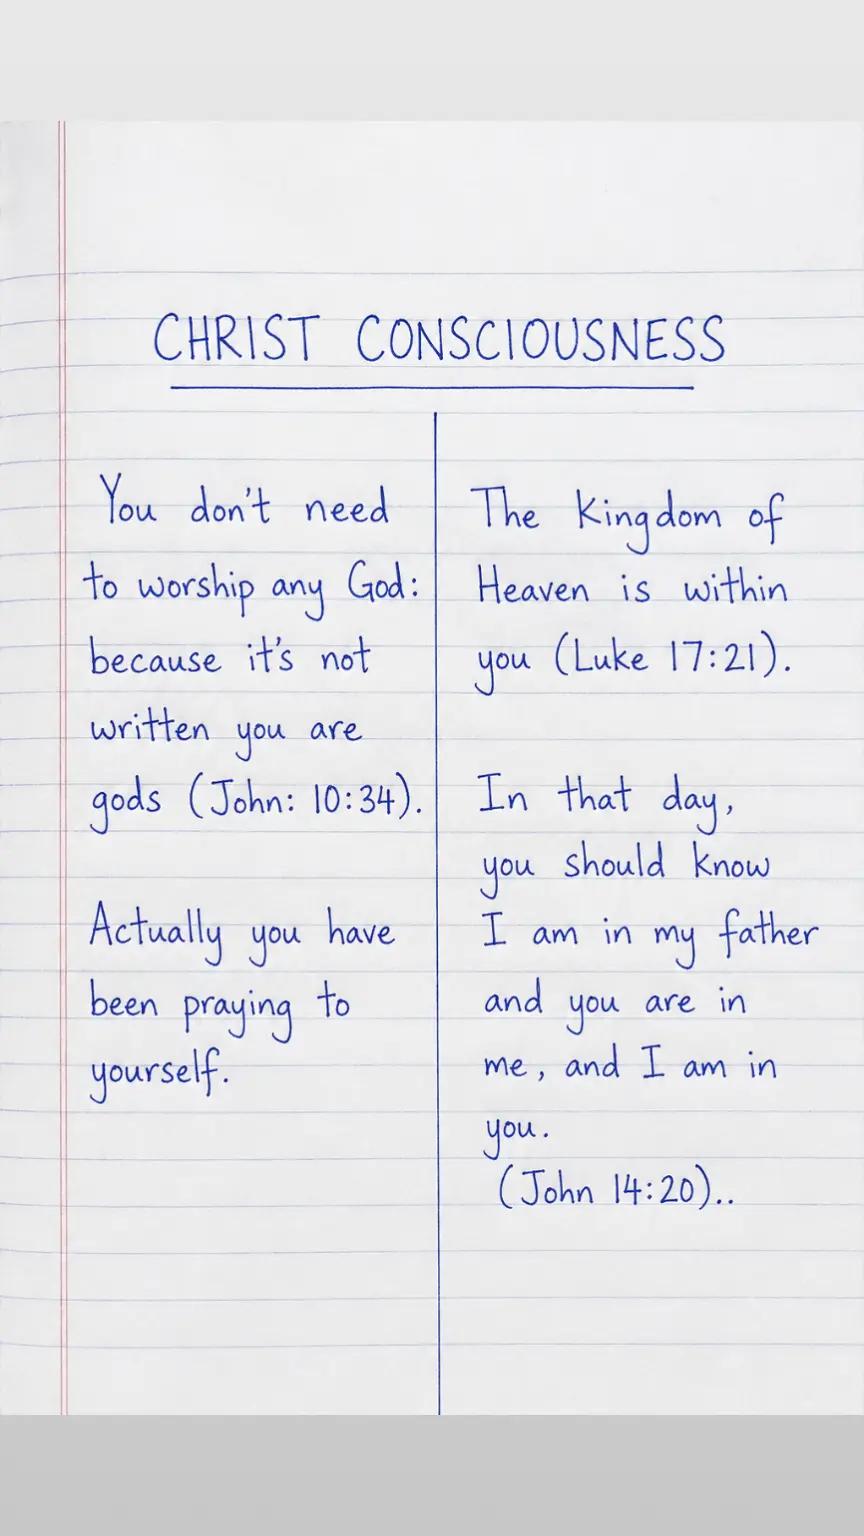 CHRIST CONSCIOUSNESS
You don't need
to worship any God:
because it's not
written you are
gods (John: 10:34).
Actually you have
been praying to
yourself.
The Kingdom of
Heaven is within
you (Luke 17:21).
In that day,
you should know
I am in my father
and you are in
me, and I am in
you.
(John 14:20)..